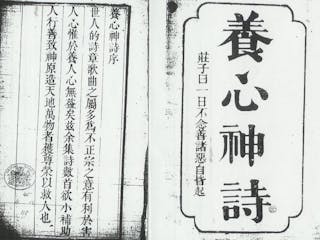 養心神詩
莊子曰一日不念善諸惡自皆起
養心神詩序
世人的詩章歌曲之屬多為不正宗之意有利於害
人心惟於養人心無益矣茲余集詩數首欲小補助
人行善致神原造天地萬物者獲尊榮以救人也